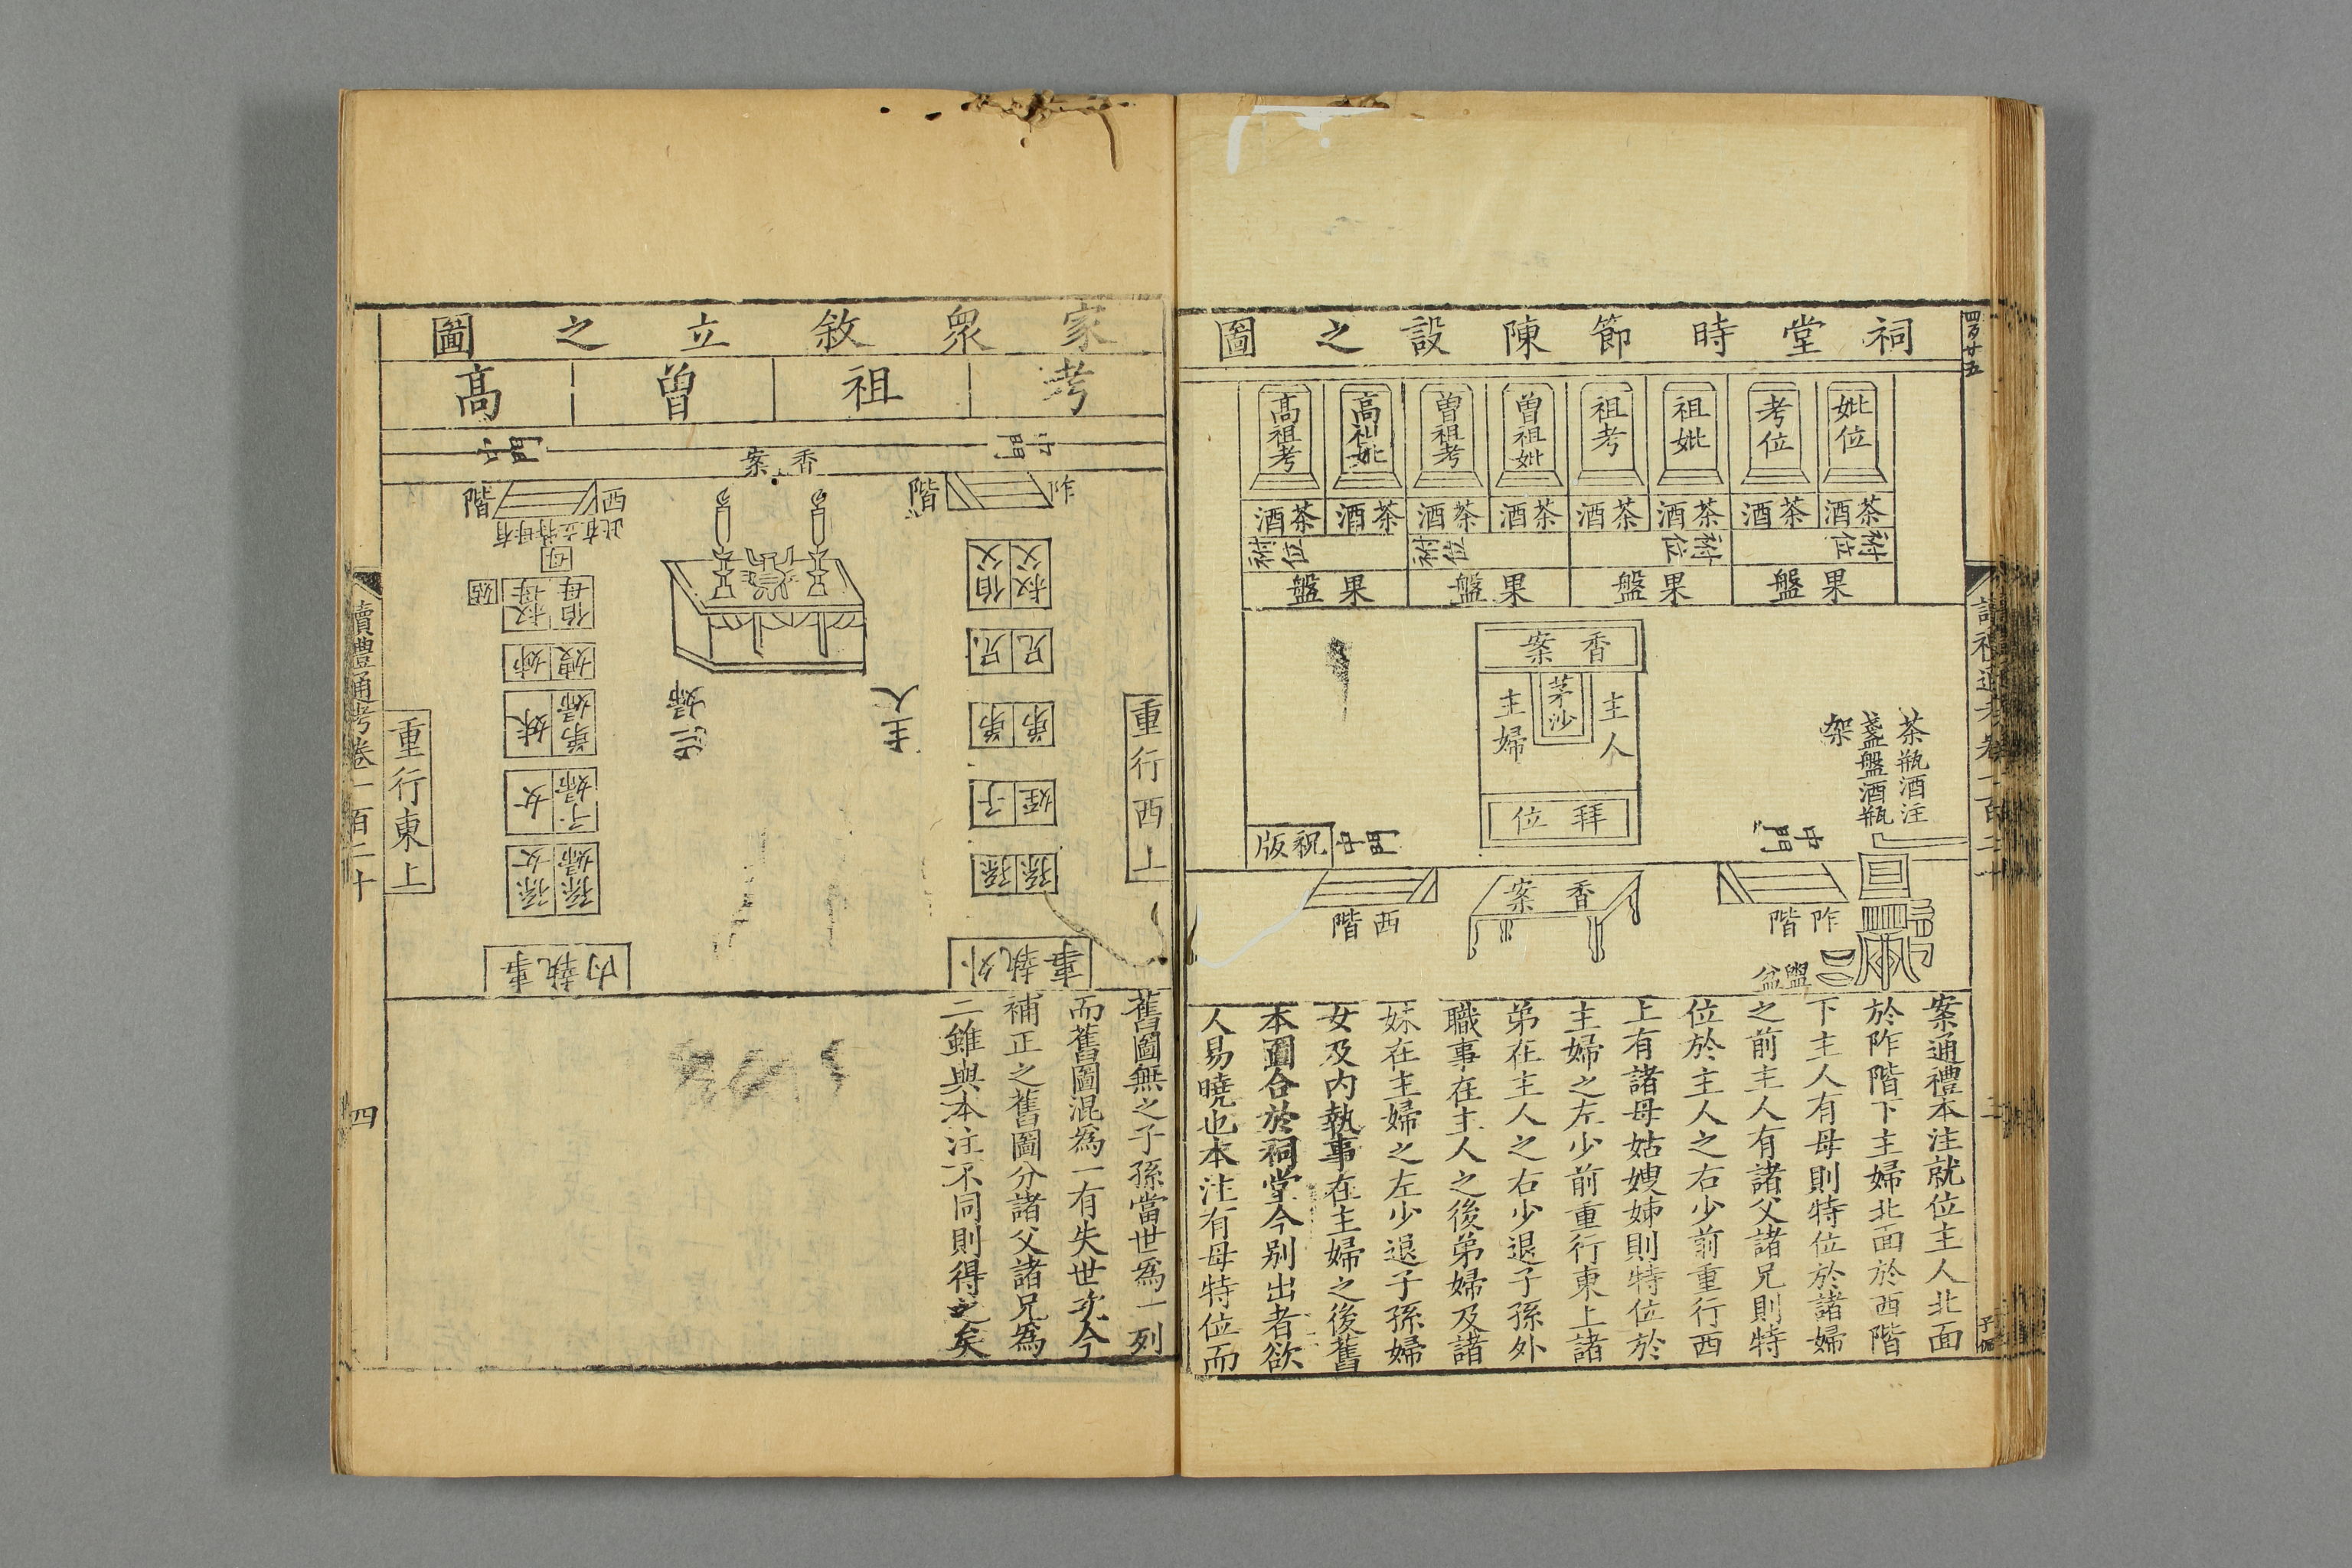 四百廿五
祠堂時節陳設之圖
妣位
考位
祖妣
祖考
曾祖妣
曾祖考
高祖妣
高祖考
茶酒
茶酒
茶酒
茶酒
茶酒
茶酒
茶酒
茶酒
祔位
祔位
祔位
祔位
果盤
果盤
果盤
果盤
香案
主人
茅沙
主婦
拜位
茶瓶酒注
盞盤酒瓶
架
中門
中門
祝版
阼階
香案
西階
盥盆
案通禮本注就位主人北面
於阼階下主婦北面於西階
下主人有母則特位於諸婦
之前主人有諸父諸兄則特
位於主人之右少前重行西
上有諸母姑嫂姊則特位於
主婦之左少前重行東上諸
弟在主人之右少退子孫外
職事在主人之後弟婦及諸
妹在主婦之左少退子孫婦
女及內執事在主婦之後舊
本圖合於祠堂今别出者欲
人易曉也本注有母特位而
家眾敘立之圖
考
祖
曾
高
中門
香案
中門
階
西階
此有立特母有
母
叔父
伯父
兄
兄
弟
弟
姪
子
孫
孫
重行西上
主人
主婦
伯母
叔母
姑
嫂
姊
弟婦
妹
子婦
女
孫婦
孫女
重行東上
外執事
內執事
舊圖無之子孫當世爲一列
而舊圖混爲一有失世次今
補正之舊圖分諸父諸兄爲
二雖與本注不同則得之矣
讀禮通考卷一百二十
四